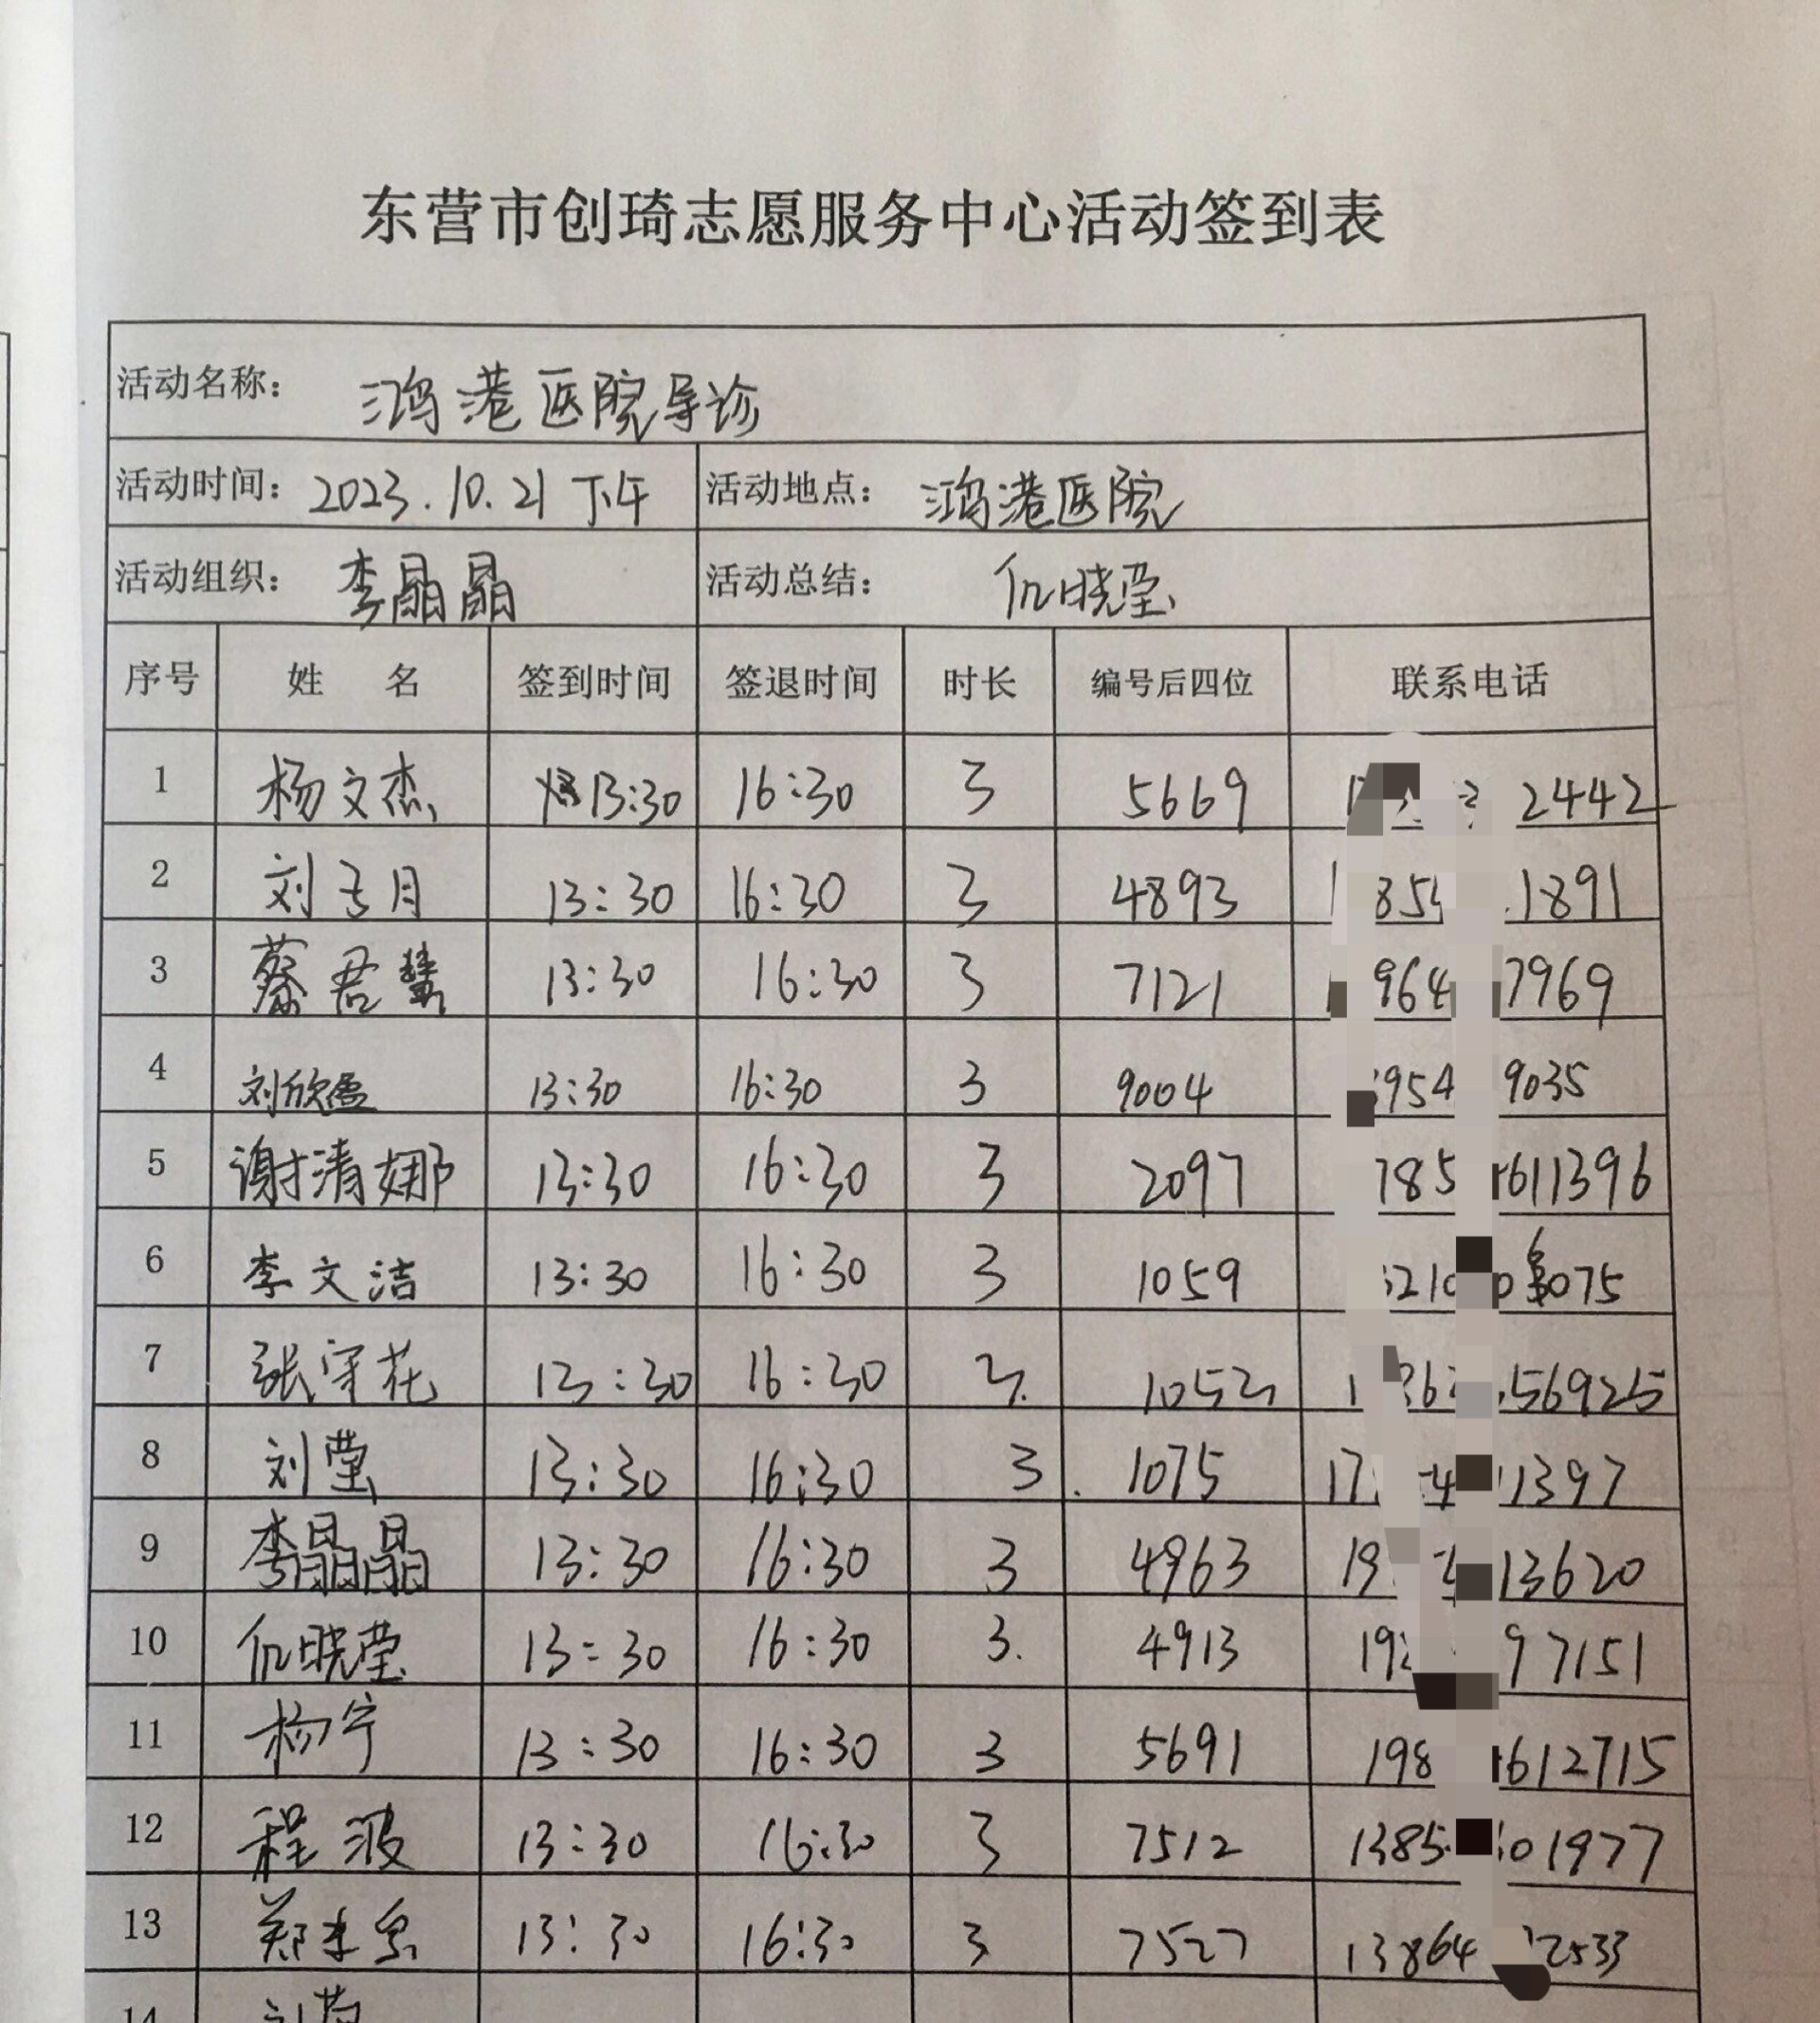 东营市创琦志愿服务中心活动签到表
活动名称： 鸿港医院导诊
活动时间：2023.10.21下午 活动地点：鸿港医院
活动组织：李晶晶 活动总结：仉晓莹
序号 姓 名 签到时间 签退时间 时长 编号后四位 联系电话
1 杨文杰 13:30 16:30 3 5669 2442
2 刘子月 13:30 16:30 3 4893 1891
3 蔡君慧 13:30 16:30 3 7121 964 7969
4 刘欣盈 13:30 16:30 3 9004 954 9035
5 谢清娜 13:30 16:30 3 2097 785 611396
6 李文洁 13:30 16:30 3 1059 210 075
7 张守花 13:30 16:30 3. 1053 56925
8 刘莹 13:30 16:30 3. 1075 17 4 1397
9 李晶晶 13:30 16:30 3 4963 19 13620
10 仉晓莹 13:30 16:30 3. 4913 19 97151
11 杨宁 13:30 16:30 3 5691 198 612715
12 程波 13:30 16:30 3 7512 1385 01977
13 郑 13:30 16:30 3 7527 13864 2533
14 刘